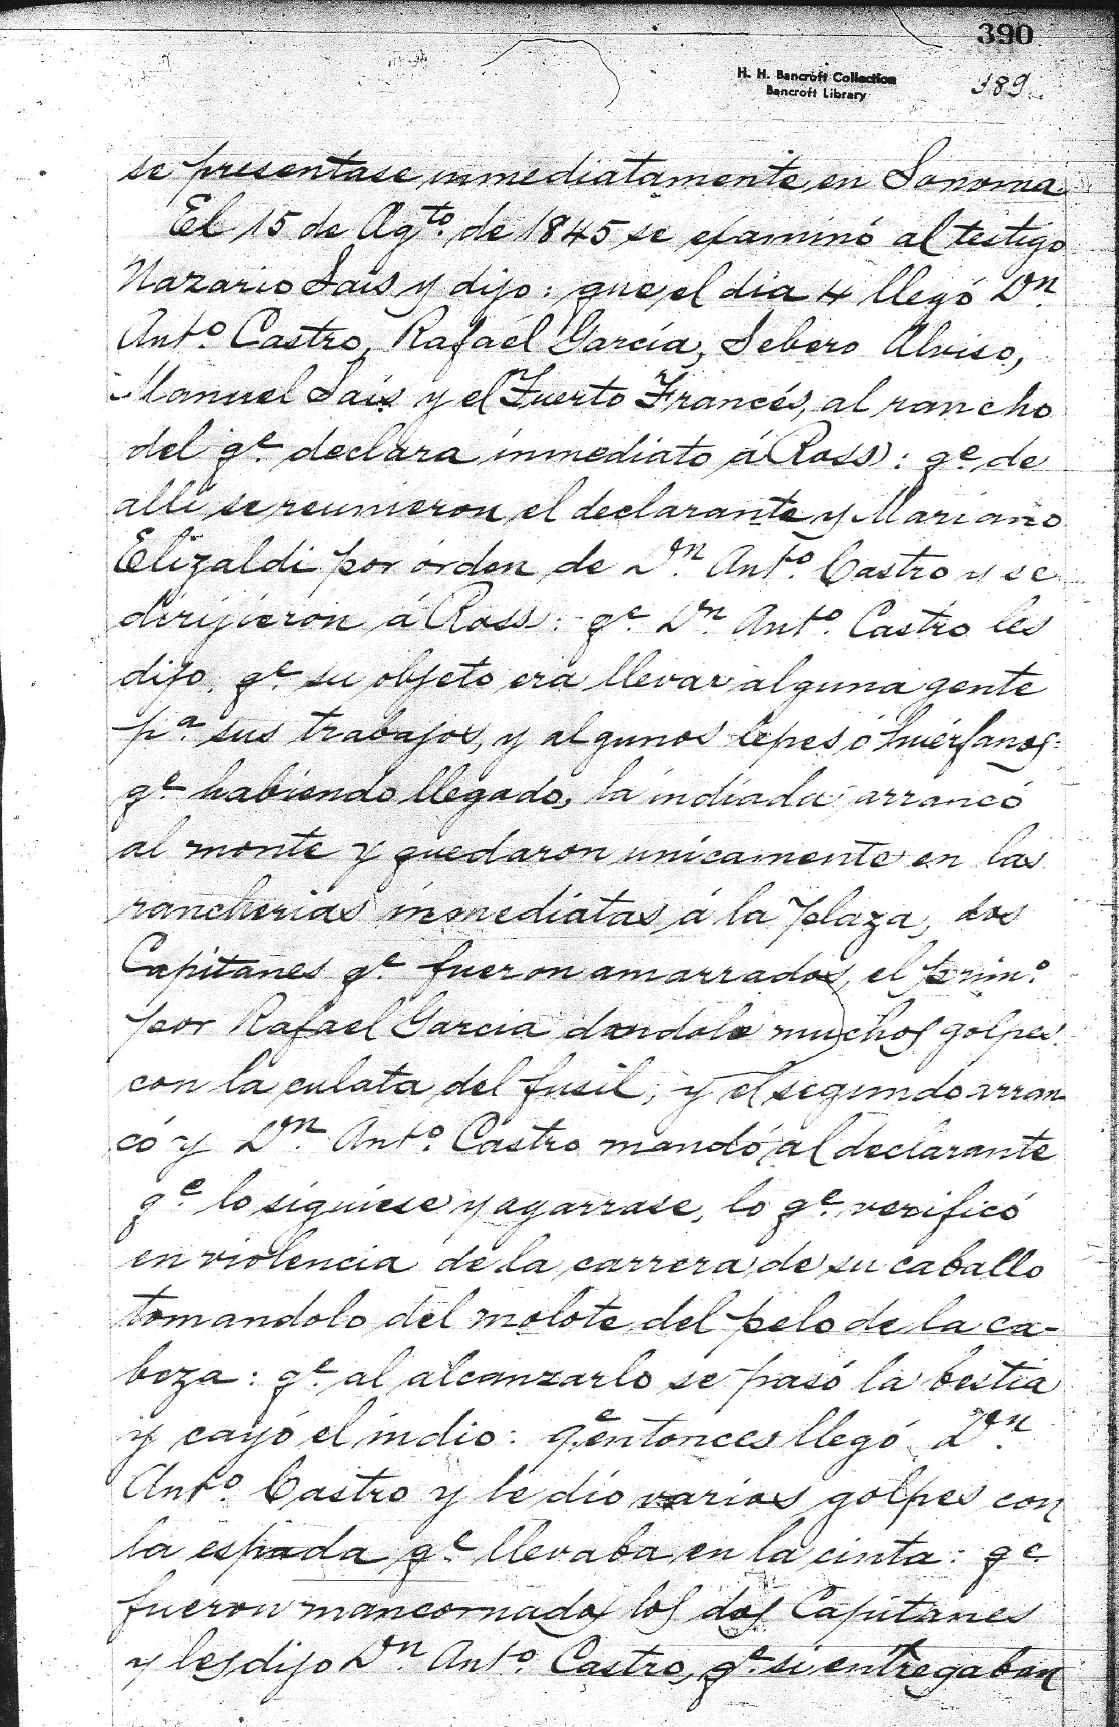 390
H. H. Bancroft Collection
Bancroft Library
389
se presentase inmediatamente en Sonoma
El 15 de Agto. de 1845 se examinó al testigo
Nazario Sais y dijo: que el dia 4 llegó Dn
Anto. Castro, Rafaél García, Sebero Alviso,
Manuel Sais y el Tuerto Francés, al rancho
del qe. declara inmediato á Ross: qe. de
alli se reunieron el declarante y Mariano
Elizaldi por órden de Dn. Anto. Castro y se
dirijieron á Ross: qe. Dn. Anto. Castro les
dijo qe. su objeto era llevar alguna gente
pa. sus trabajos, y algunos lepes ó huérfanos:
qe. habiendo llegado, la indiada arrancó
al monte y quedaron unicamente en las
rancherias inmediatas á la plaza, dos
Capitanes qe. fueron amarrados, el prim.o
por Rafael Garcia dandole muchos golpes
con la culata del fusil, y el segundo arran
có y Dn. Anto. Castro mandó al declarante
qe. lo siguiese y agarrase, lo qe. verificó
en violencia de la carrera de su caballo
tomandolo del molote del pelo de la ca-
beza: qe. al alcanzarlo se pasó la bestia
y cayó el indio: qe. entonces llegó Dn.
Anto. Castro y le dió varios golpes con
la espada qe. llevaba en la cinta: qe
fueron mancornados los dos Capitanes
y les dijo Dn. Anto. Castro, qe. si entregaban